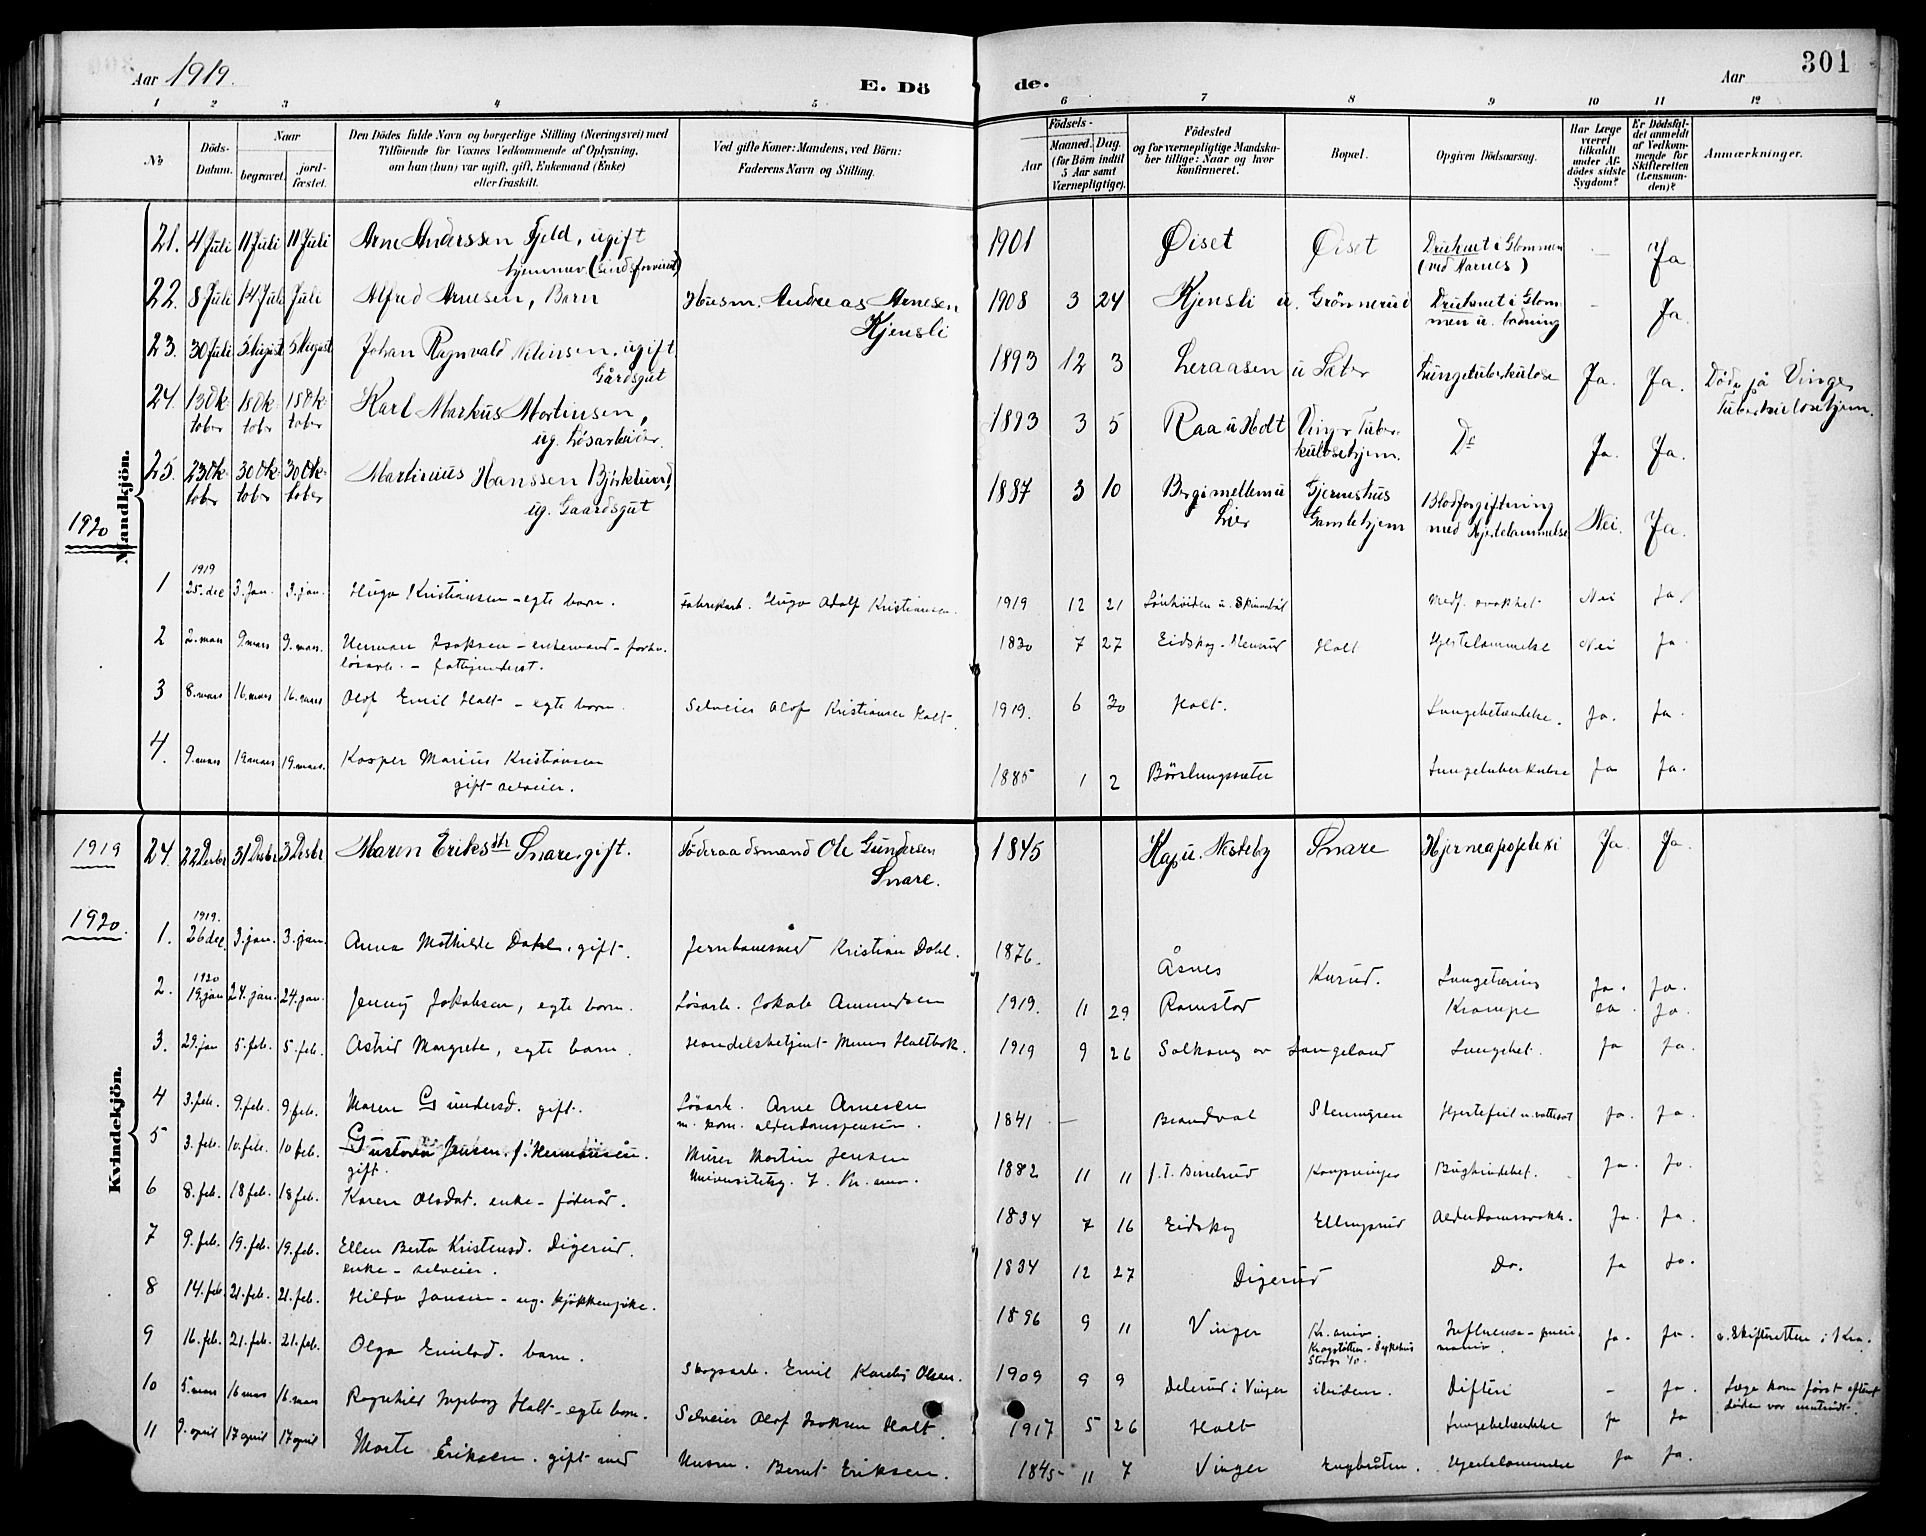 Aar 1919.
E. Dö
de.
Aar
301
1 2 3 4 5 6 7 8 9 10 11 12
No
Döds-
Datum.
Naar
begravet.
jord-
fæstet.
Den Dödes fulde Navn og borgerlige Stilling (Næringsvei) med
Tilföiende for Voxnes Vedkommende af Oplysning,
om han (hun) var ugift, gift, Enkemand (Enke)
eller fraskilt.
Ved gifte Koner: Mandens, ved Börn:
Faderens Navn og Stilling.
Födsels-
Aar
Maaned. Dag.
(for Börn indtil
5 Aar samt
Værnepligtige).
Födested
og for værnepligtige Mandska-
ber tillige: Naar og hvor
konfirmeret.
Bopæl.
Opgiven Dödsaarsag.
Har Læge
været
tilkaldt
under Af-
dödes sidste
Sygdom?
Er Dödsfal-
det anmeldt
af Vedkom-
mende for
Skifteretten
(Lensman-
den)?
Anmærkninger.
Mandkjön.
21. 4 Juli 11 Juli 11 Juli Arne Anderssen Fjeld, ugift 1901 Öiset Öiset Druknet i Glommen – Ja
(sindsforvirret) (ved Aarnes)
22. 8 Juli 14 Juli Juli Alfred Arnesen, Barn Husm. Andreas Arnesen 1908 3 24 Kjensli u. Grönnerud Druknet i Glom- – Ja.
Kjensli men u. badning
23. 30 Juli 5 August 5 August Johan Ragnvald Nilsinsen, ugift 1893 12 3 Leraasen u Sæter Lungetuberkulose Ja. Ja. Döde på Vinger
Gårdsgut Tuberkulosehjem.
24. 13 Ok- 18 Ok- 18 Ok- Karl Markus Mortinsen, 1893 3 5 Raa u Holt Vinger Tuber- Do Ja. Ja.
tober tober tober ug. Løsarbeider. kulosehjem.
25. 23 Ok- 30 Ok- 30 Ok- Martinius Hanssen Björklund, 1887 3 10 Gjernshus Blodforgiftning Nei. Ja.
tober tober tober ug. Gaardsgut Lier Gamlehjem med Hjertelammelse
1920
1 1919 25. dec 3. jan. 3. jan. Hugo Kristiansen – egte barn. Fabrikarb. Hugo Adolf Kristiansen. 1919 12 21 medf. svakhet Nei Ja.
2 2. mars 9. mars 9. mars. Herman Isaksen – enkemand – forhv. 1830 7 27 Eidskog Holt Hjertelammelse Nei Ja
løsarb. – fattigunderst.
3 8. mars 16. mars 16. mars Olof Emil Holt – egte barn. Selveier Olof Kristiansen Holt. 1919. 6 30 Holt. Lungebetændelse. Ja. Ja.
4. 9. mars 19 mars 19. mars. Kasper Marius Kristiansen 1885 1 2 Börslungssæter Lungetuberkulose Ja Ja.
gift selveier.
Kvindekjön.
1919 24. 22 Desbr 31 Desbr 3 Desbr Maren Eriksdtr Snare, gift. Föderaadsmand Ole Gundersen 1845 Kap u. Nesteby Snare Hjerneapoplexi Ja Ja.
Snare.
1920
1. 1919. 26 dec. 3. jan. 3. jan. Anna Mathilde Dahl, gift. Jernbanesmed Kristian Dahl. 1876. Åsnes Kurud. Lungetæring Ja. Ja.
2. 1920 19. jan 24. jan. 24. jan. Jenny Jakobsen, egte barn. Løsarb. Jakob Amundsen 1919. 11 29 Ramstad Krampe Ja.
3. 29. jan 5. feb. 5. feb. Astrid Margrete, egte barn. Handelsbetjent Holtbak. 1919 9 26 Solhaug av Langeland Lungebet. Ja Ja.
4 3. feb. 9. feb. 9 feb. Maren Gundersd. gift. Løsarb. Arne Arnesen 1841 – Brandval Ja. Ja.
m. kom. alderdomspension.
5 3. feb. 10. feb. 10 feb. Gustava Jensen f. Hermansen. Murer Martin Jensen 1882 11 11 Kongsvinger Ja. Ja.
gift. Universitetsg. 7. Kr.ania.
6 8. feb. 18 feb. 18 feb. Karen Olsdat. enke – föderåd. 1834 7 16 Eidskog Ellingsrud Alderdomssvakh. Ja. Ja.
7 9. feb. 19. feb. 19. feb. Ellen Berta Kristensd. Digerud. 1834 12 27 Digerud Do. Ja Ja.
enke – selveier.
8 14. feb. 21. feb. 21. feb. Hilda Jansen – ug. kjökkenpike. 1896 9 11 Vinger Kr.ania. Influensa – Ja. Ja. v. Skifteretten i Kra.
9 16. feb. 21. feb. 21. feb. Olga Emilsd. barn. Skogsarb. Emil Olsen. 1909 9 9 Delerud i Vinger ibidem. Difteri – Ja. Læge kom först efterat
döden var inntrådt.
10 5. mars 16 mars 16. mars Ragnhild Ingeborg Holt – egte barn. Selveier Olof Isaksen Holt. 1917 5 26 Holt Lungebetændelse Ja Ja
11 9. april 17 april 17 april Marte Eriksen. gift med Husm. Bernt Eriksen. 1845 11 7 Vinger Engbråten. Hjertelammelse Ja Ja.